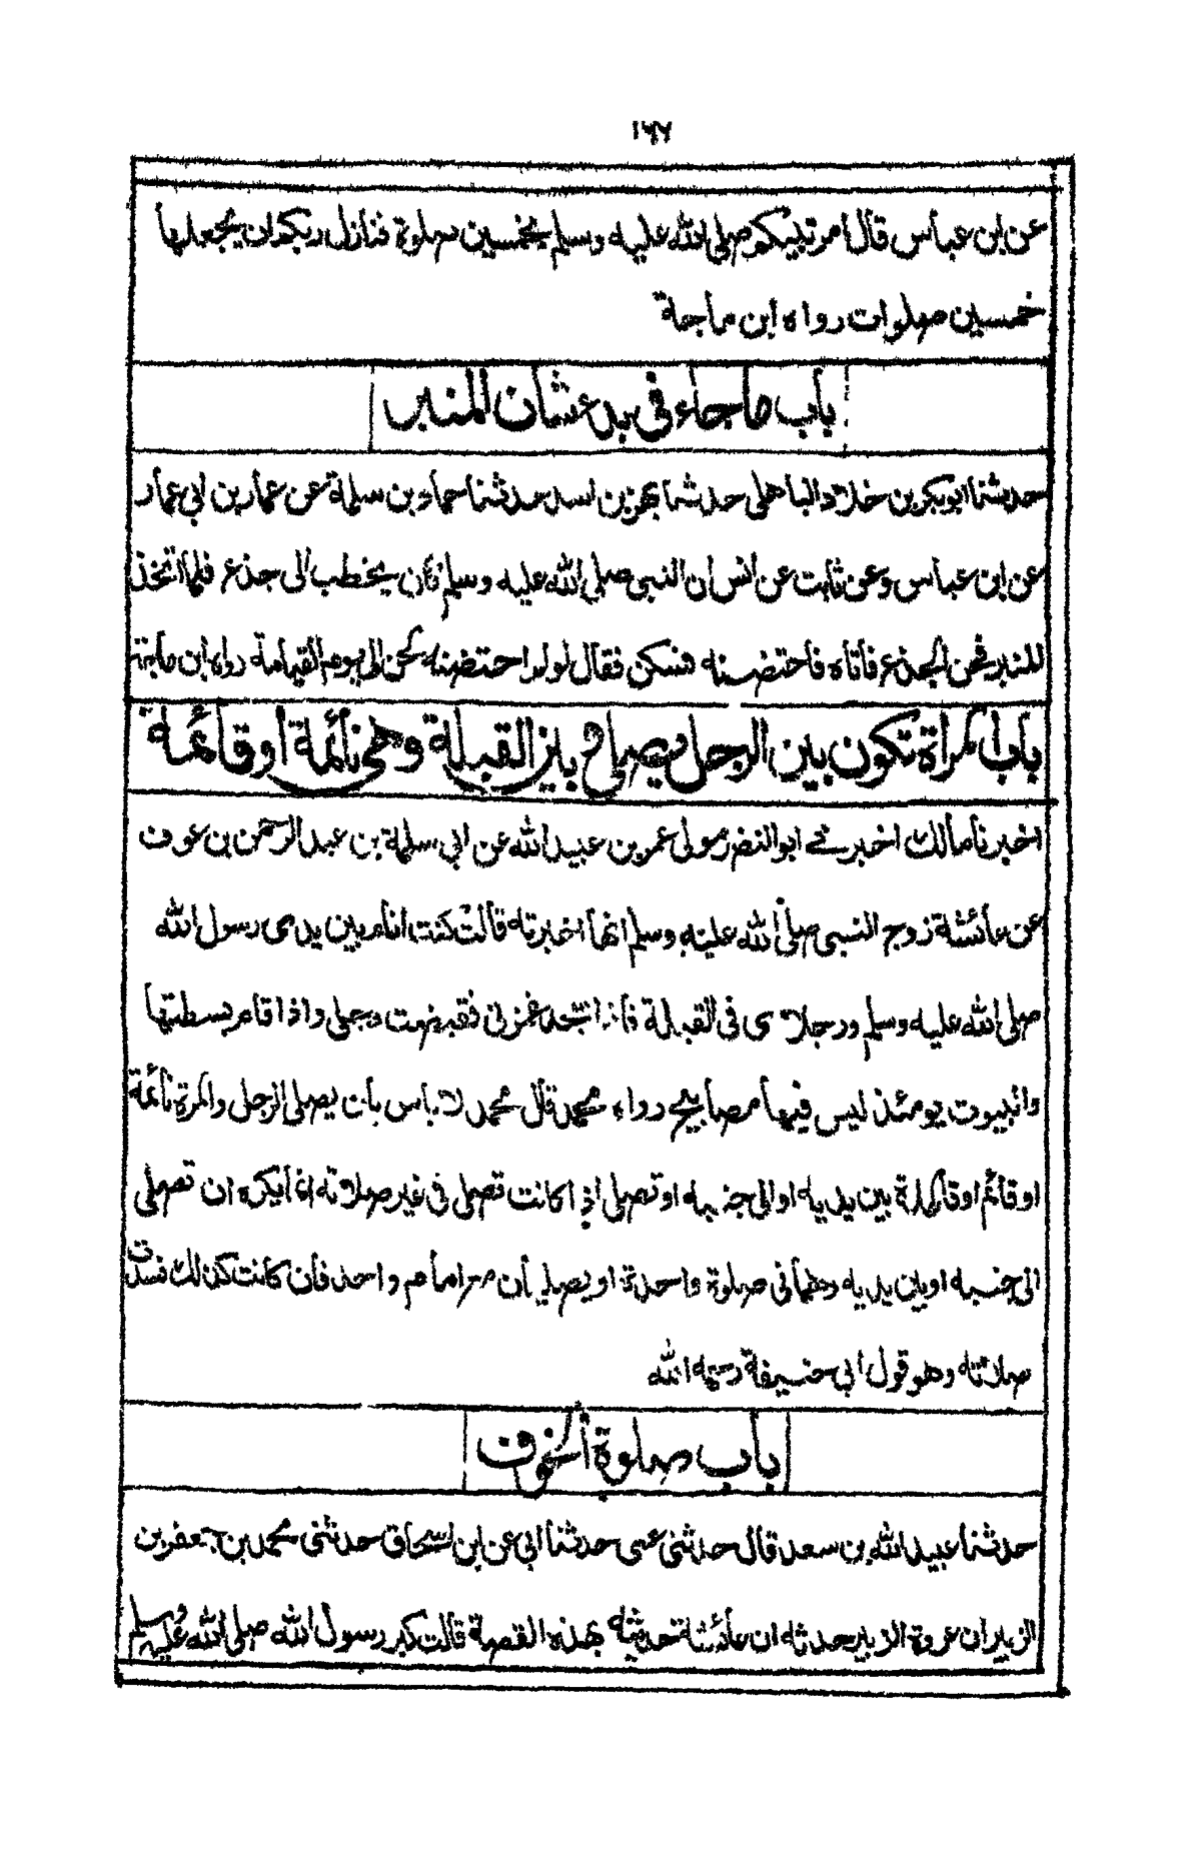 ١٦٧
عن ابن عباس قال أمر نبيكم صلى الله عليه وسلم بخمسين صلوة فنازل ربكم ان يجعلها
خمسين صلوات رواه ابن ماجة
باب ماجاء في بدء شان المنبر
حدثنا ابوبكر بن خلاد الباهلى حدثنا بهز بن اسد حدثنا حماد بن سلمة عن عمار بن ابي عمار
عن ابن عباس وعن ثابت عن انس ان النبي صلى الله عليه وسلم كان يخطب الى جذع فلما اتخذ
المنبر فحن الجذع فأتاه فأحتضنه فسكن فقال لو لم احتضنه لحن الى يوم القيامة رواه ابن ماجة
باب المرأة تكون بين الرجل يصلى وبين القبلة وهى نائمة أو قائمة
اخبرنا مالك اخبرني ابو النضر مولى عمر بن عبيد الله عن ابي سلمة بن عبد الرحمن بن عوف
عن عائشة زوج النبي صلى الله عليه وسلم انها اخبرته قالت كنت انام بين يدى رسول الله
صلى الله عليه وسلم ورجلاى في القبلة فأذا سجد غمزنى فقبضت رجلى واذا قام بسطتها
والبيوت يومئذ ليس فيها مصابيح رواه محمد قال محمد لا باس بأن يصلى الرجل والمرة نائمة
او قائمة بين يديه او الى جنبه او تصلى اذا كانت تصلى في غير صلاته انما يكره ان تصلى
الى جنبه او بين يديه وهما في صلوة واحدة او يصليان مع امام واحد فأن كانت كذلك فسدت
صلاته وهو قول ابي حنيفة رحمه الله
باب صلوة الخوف
حدثنا عبيد الله بن سعد قال حدثنى عمى حدثنا ابي عن ابن اسحاق حدثنى محمد بن جعفر بن
الزبير ان عروة الزبير حدثه ان عائشة حدثته بهذه القصة قالت كبر رسول الله صلى الله عليه وسلم